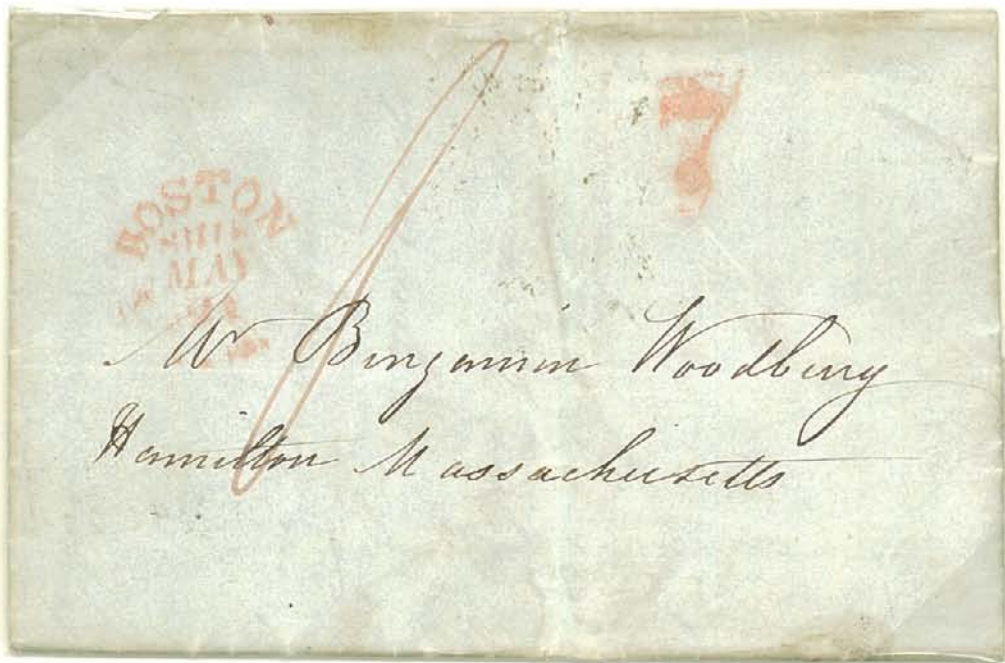 7
BOSTON
SHIP
MAY
Mr Bengamin Woodbury
Hamilton Massachusetts